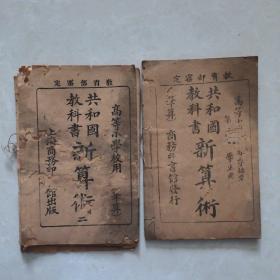 教育部審定
高等小學校用
共和國
教科書
新算術
筆算
二
上海商務印書館出版
教育部審定
共和國
教科書
新算術
筆算
商務印書館發行